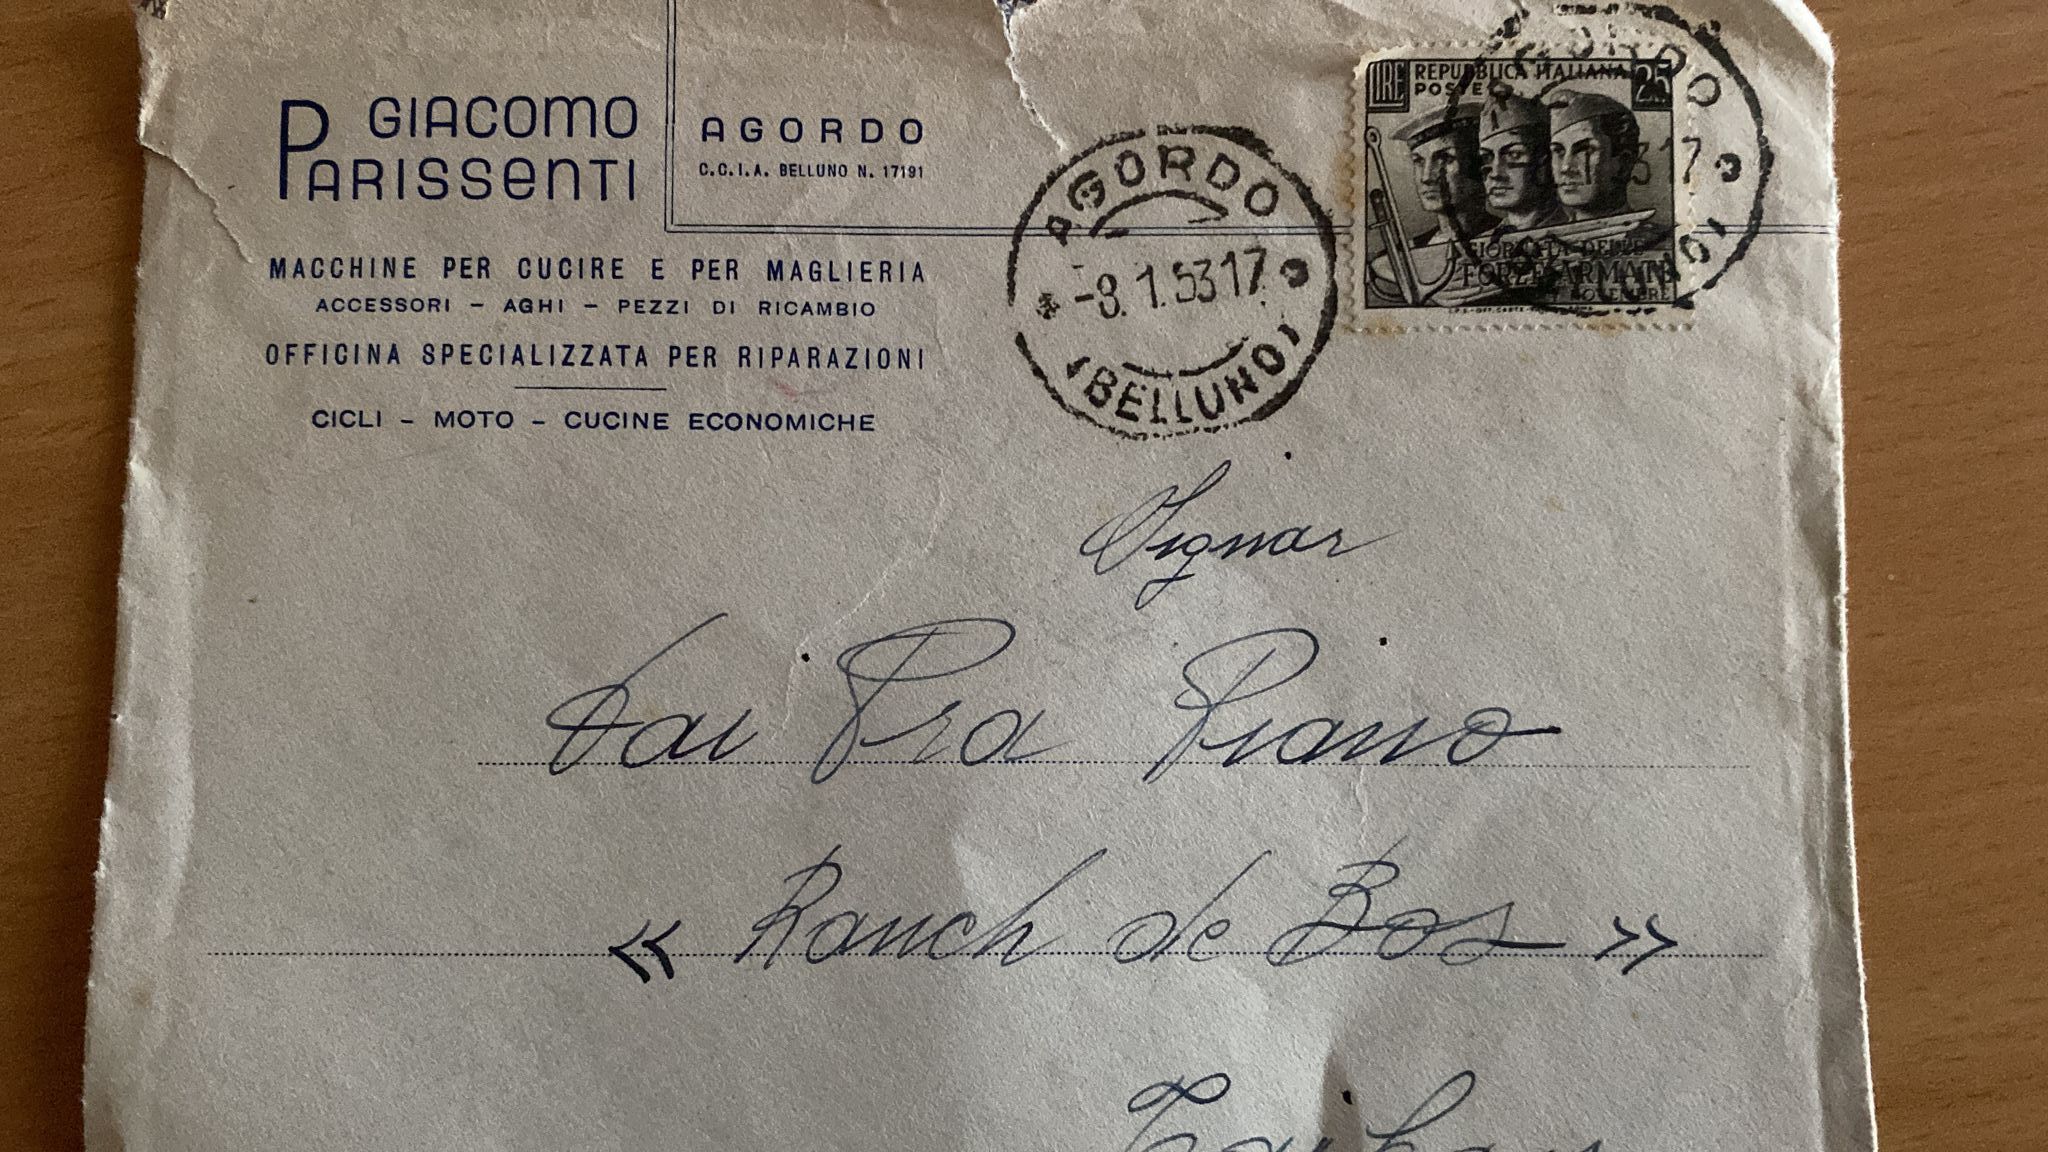 GIACOMO
PARISSENTI
AGORDO
C.C.I.A. BELLUNO N. 17191
MACCHINE PER CUCIRE E PER MAGLIERIA
ACCESSORI - AGHI - PEZZI DI RICAMBIO
OFFICINA SPECIALIZZATA PER RIPARAZIONI
CICLI - MOTO - CUCINE ECONOMICHE
AGORDO
-8.1.53 17
(BELLUNO)
LIRE REPUBBLICA ITALIANA 25
POSTE
GIORNATA DELLE
FORZE ARMATE
4 NOVEMBRE
Signor
Fai Pra Piano
« Ranch de Bos »